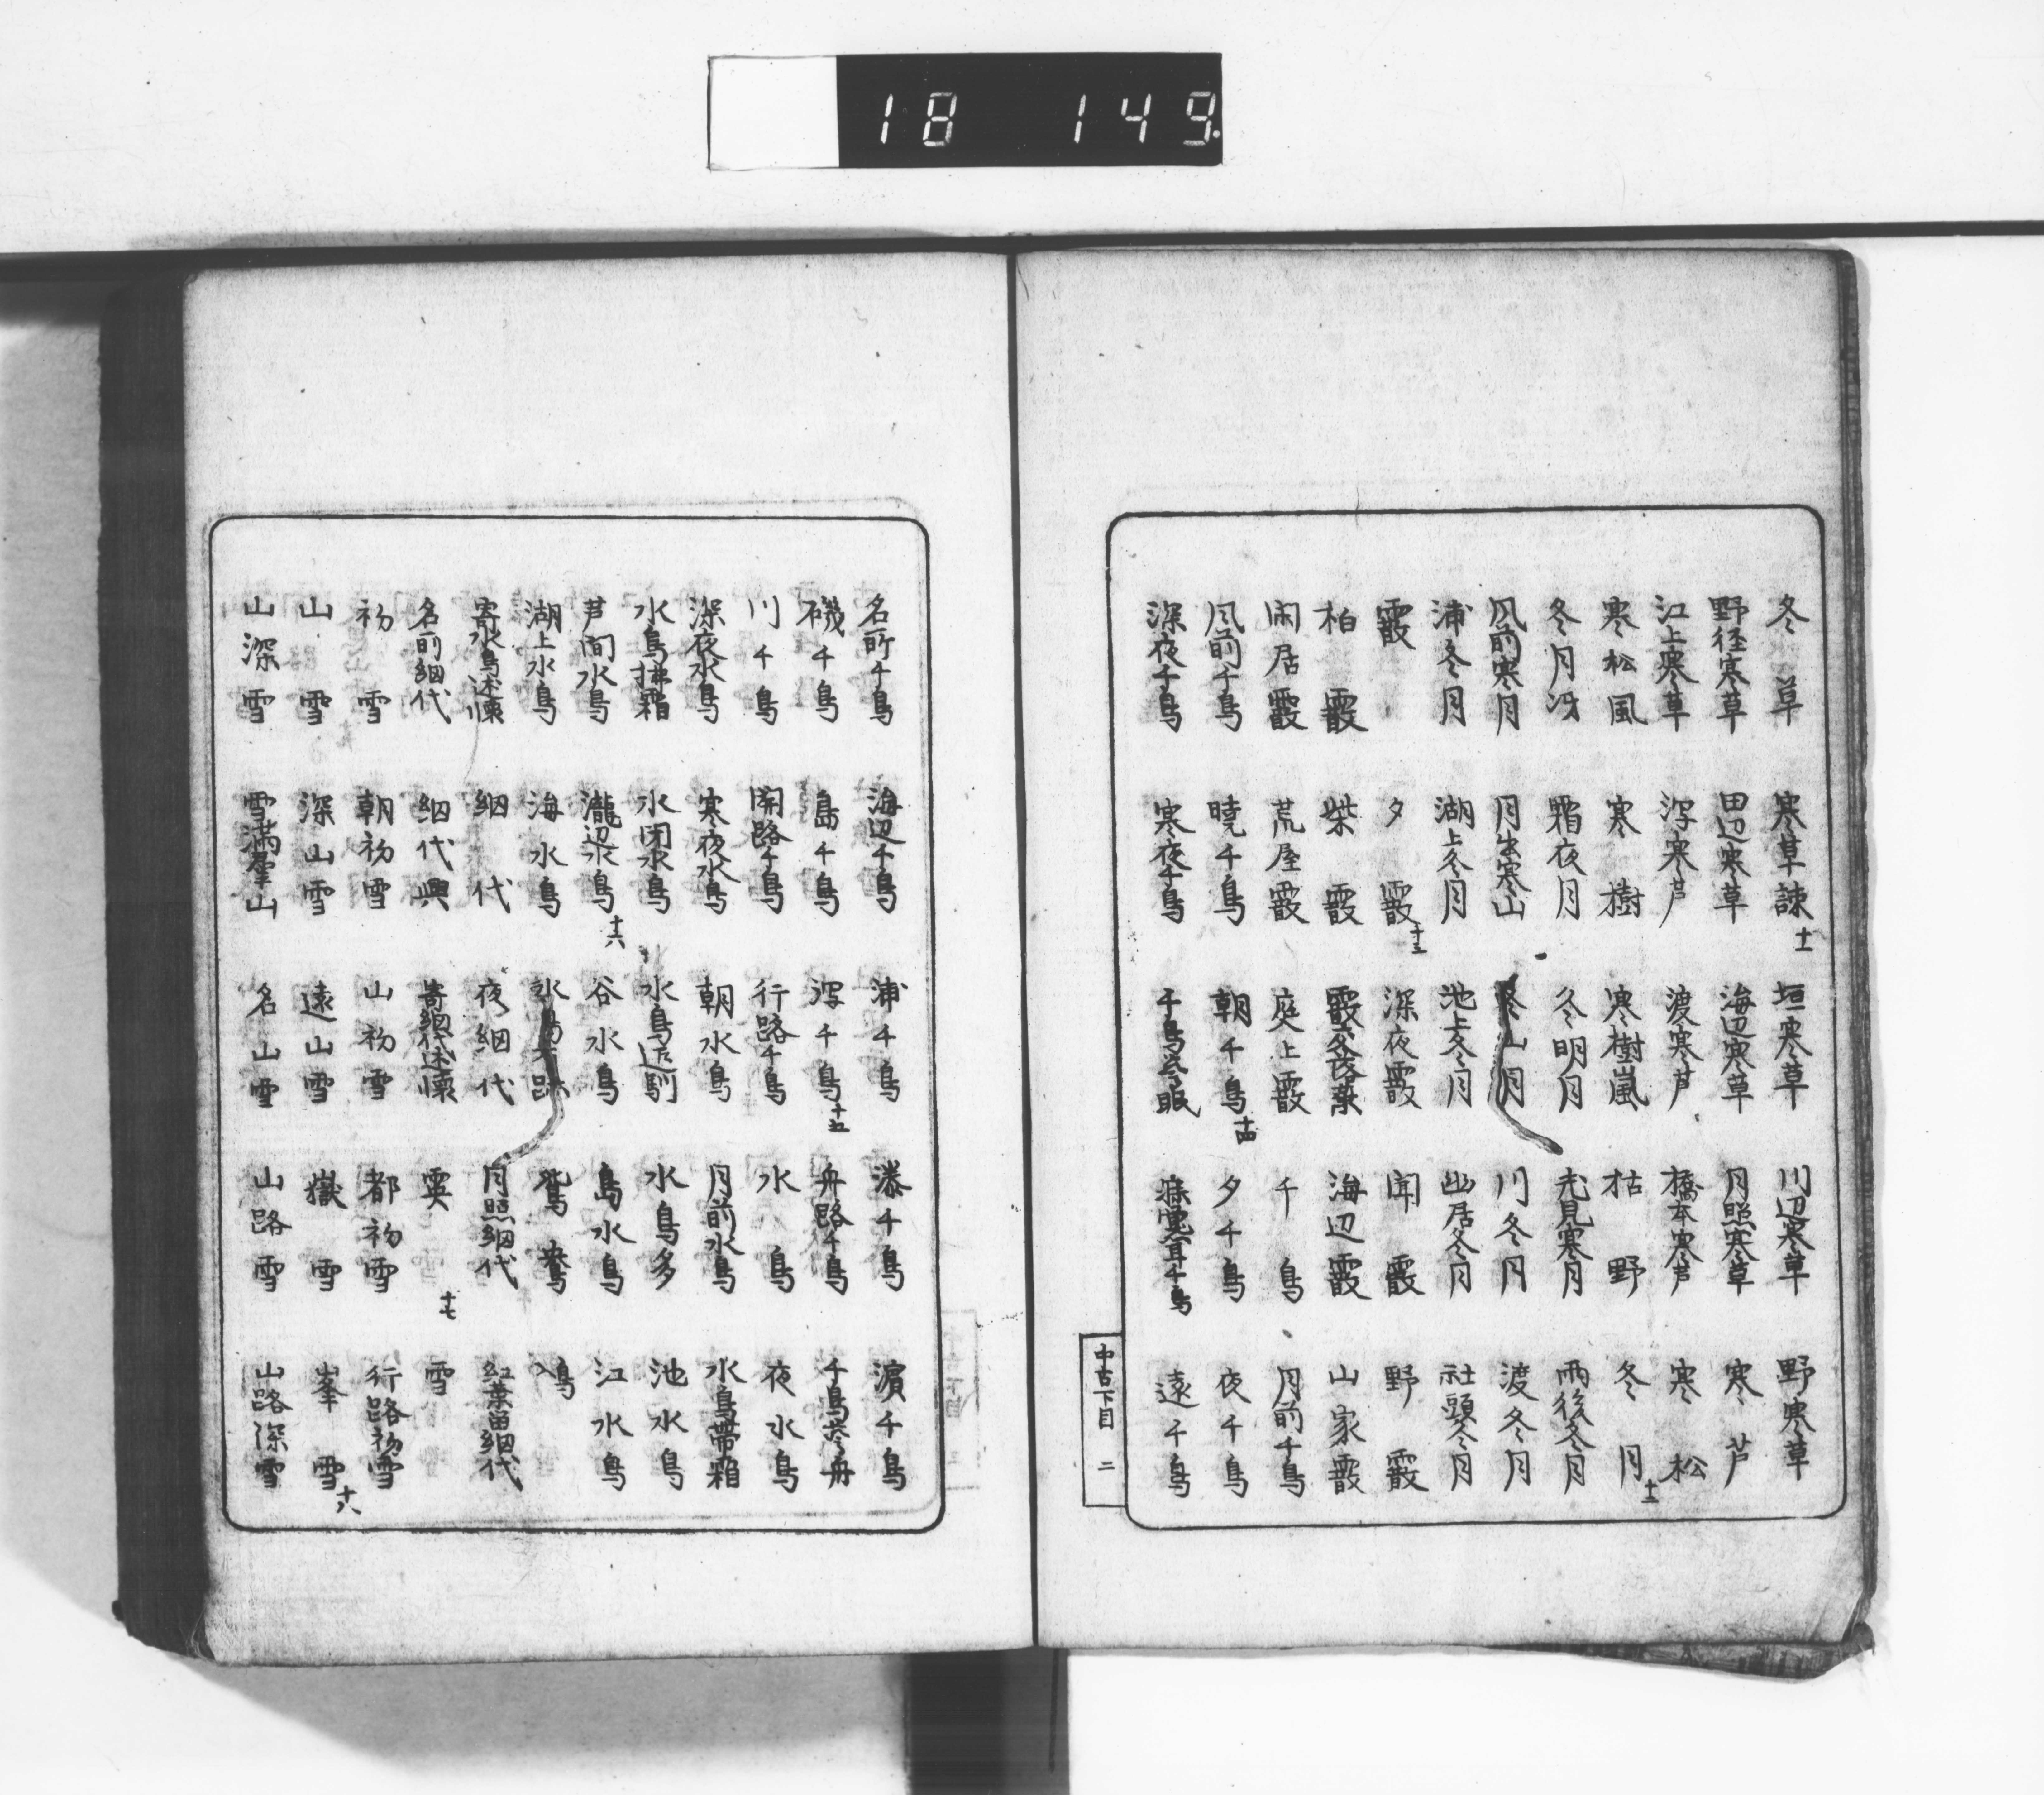 18 149
冬草 寒草疎 十一 垣寒草 川辺寒草 野寒草
野径寒草 田辺寒草 海辺寒草 月照寒草 寒芦
江上寒草 滓寒芦 渡寒芦 橋本寒芦 寒松
寒松風 寒樹 寒樹嵐 枯野 冬月 十二
冬月冴 霜夜月 冬明月 光見寒月 雨後冬月
風前寒月 月生寒山 冬山月 川冬月 渡冬月
浦冬月 湖上冬月 池上冬月 幽居冬月 社頭冬月
霰 夕霰 十三 深夜霰 聞霰 野霰
柏霰 柴霰 海辺霰 山家霰
閑居霰 荒屋霰 庭上霰 千鳥 月前千鳥
風前千鳥 暁千鳥 朝千鳥 十四 夕千鳥 夜千鳥
深夜千鳥 寒夜千鳥 遠千鳥
中古下目 二
名所千鳥 海辺千鳥 浦千鳥 湊千鳥 濱千鳥
磯千鳥 島千鳥 滓千鳥 十五 舟路千鳥
川千鳥 関路千鳥 行路千鳥 水鳥 夜水鳥
深夜水鳥 寒夜水鳥 朝水鳥 月前水鳥 水鳥帯霜
水鳥払霜 水閉水鳥 水鳥近馴 水鳥多 池水鳥
芦間水鳥 瀧辺水鳥 十六 谷水鳥 島水鳥 江水鳥
湖上水鳥 海水鳥 鴛鴦
寄水鳥述懐 網代 夜網代 月照網代 紅葉留網代
名所網代 網代興 寄網代述懐 霙 十七 雪
初雪 朝初雪 山初雪 都初雪 行路初雪
山雪 深山雪 遠山雪 嶽雪 峯雪 十八
山深雪 雪満羣山 名山雪 山路雪 山路深雪